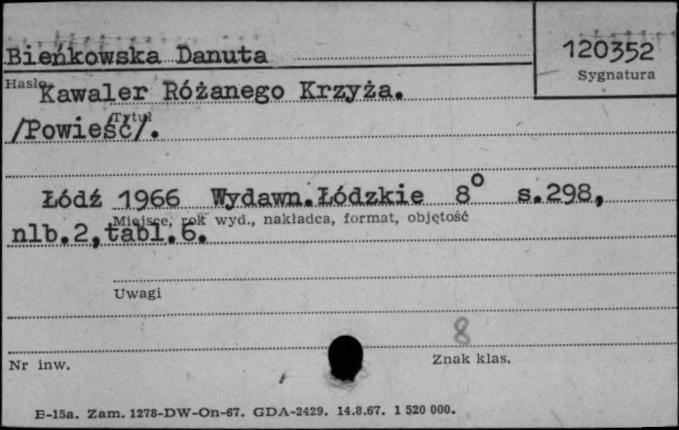 Bieńkowska Danuta
120352
Hasło
Sygnatura
Kawaler Różanego Krzyża.
Tytuł
/Powieść/.
Łódź 1966 Wydawn.Łódzkie 8° s.298,
Miejsce, rok wyd., nakładca, format, objętość
nlb.2,tabl.6.
Uwagi
8
Nr inw.
Znak klas.
E-15a. Zam. 1278-DW-On-67. GDA-2429. 14.8.67. 1 520 000.